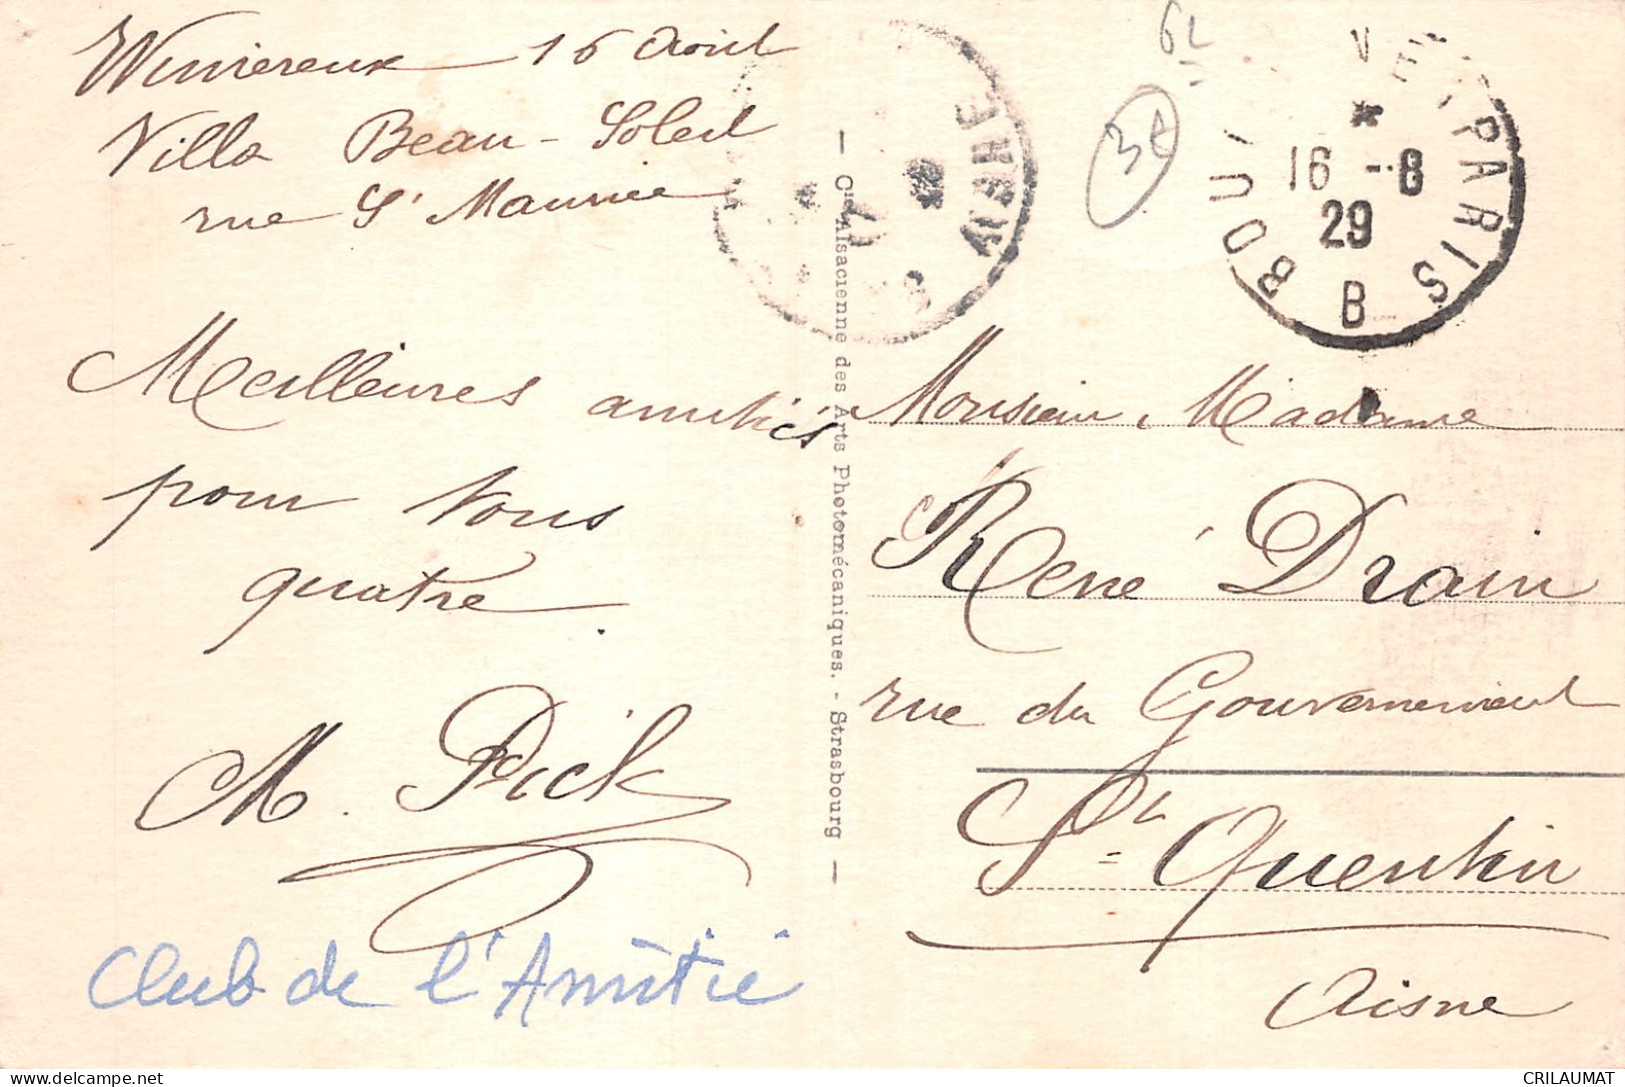 Wimereux 16 Août
Villa Beau-Soleil
rue St Maurice
Meilleures amitiés
pour vous
quatre.
M. Pick
Club de l'Amitié
— Cie Alsacienne des Arts Photomécaniques. - Strasbourg —
AISNE
62
3€
PARIS
*
16 -8
29
B
BOU
Monsieur, Madame
René Drain
rue du Gouvernement
St Quentin
Aisne
CRILAUMAT